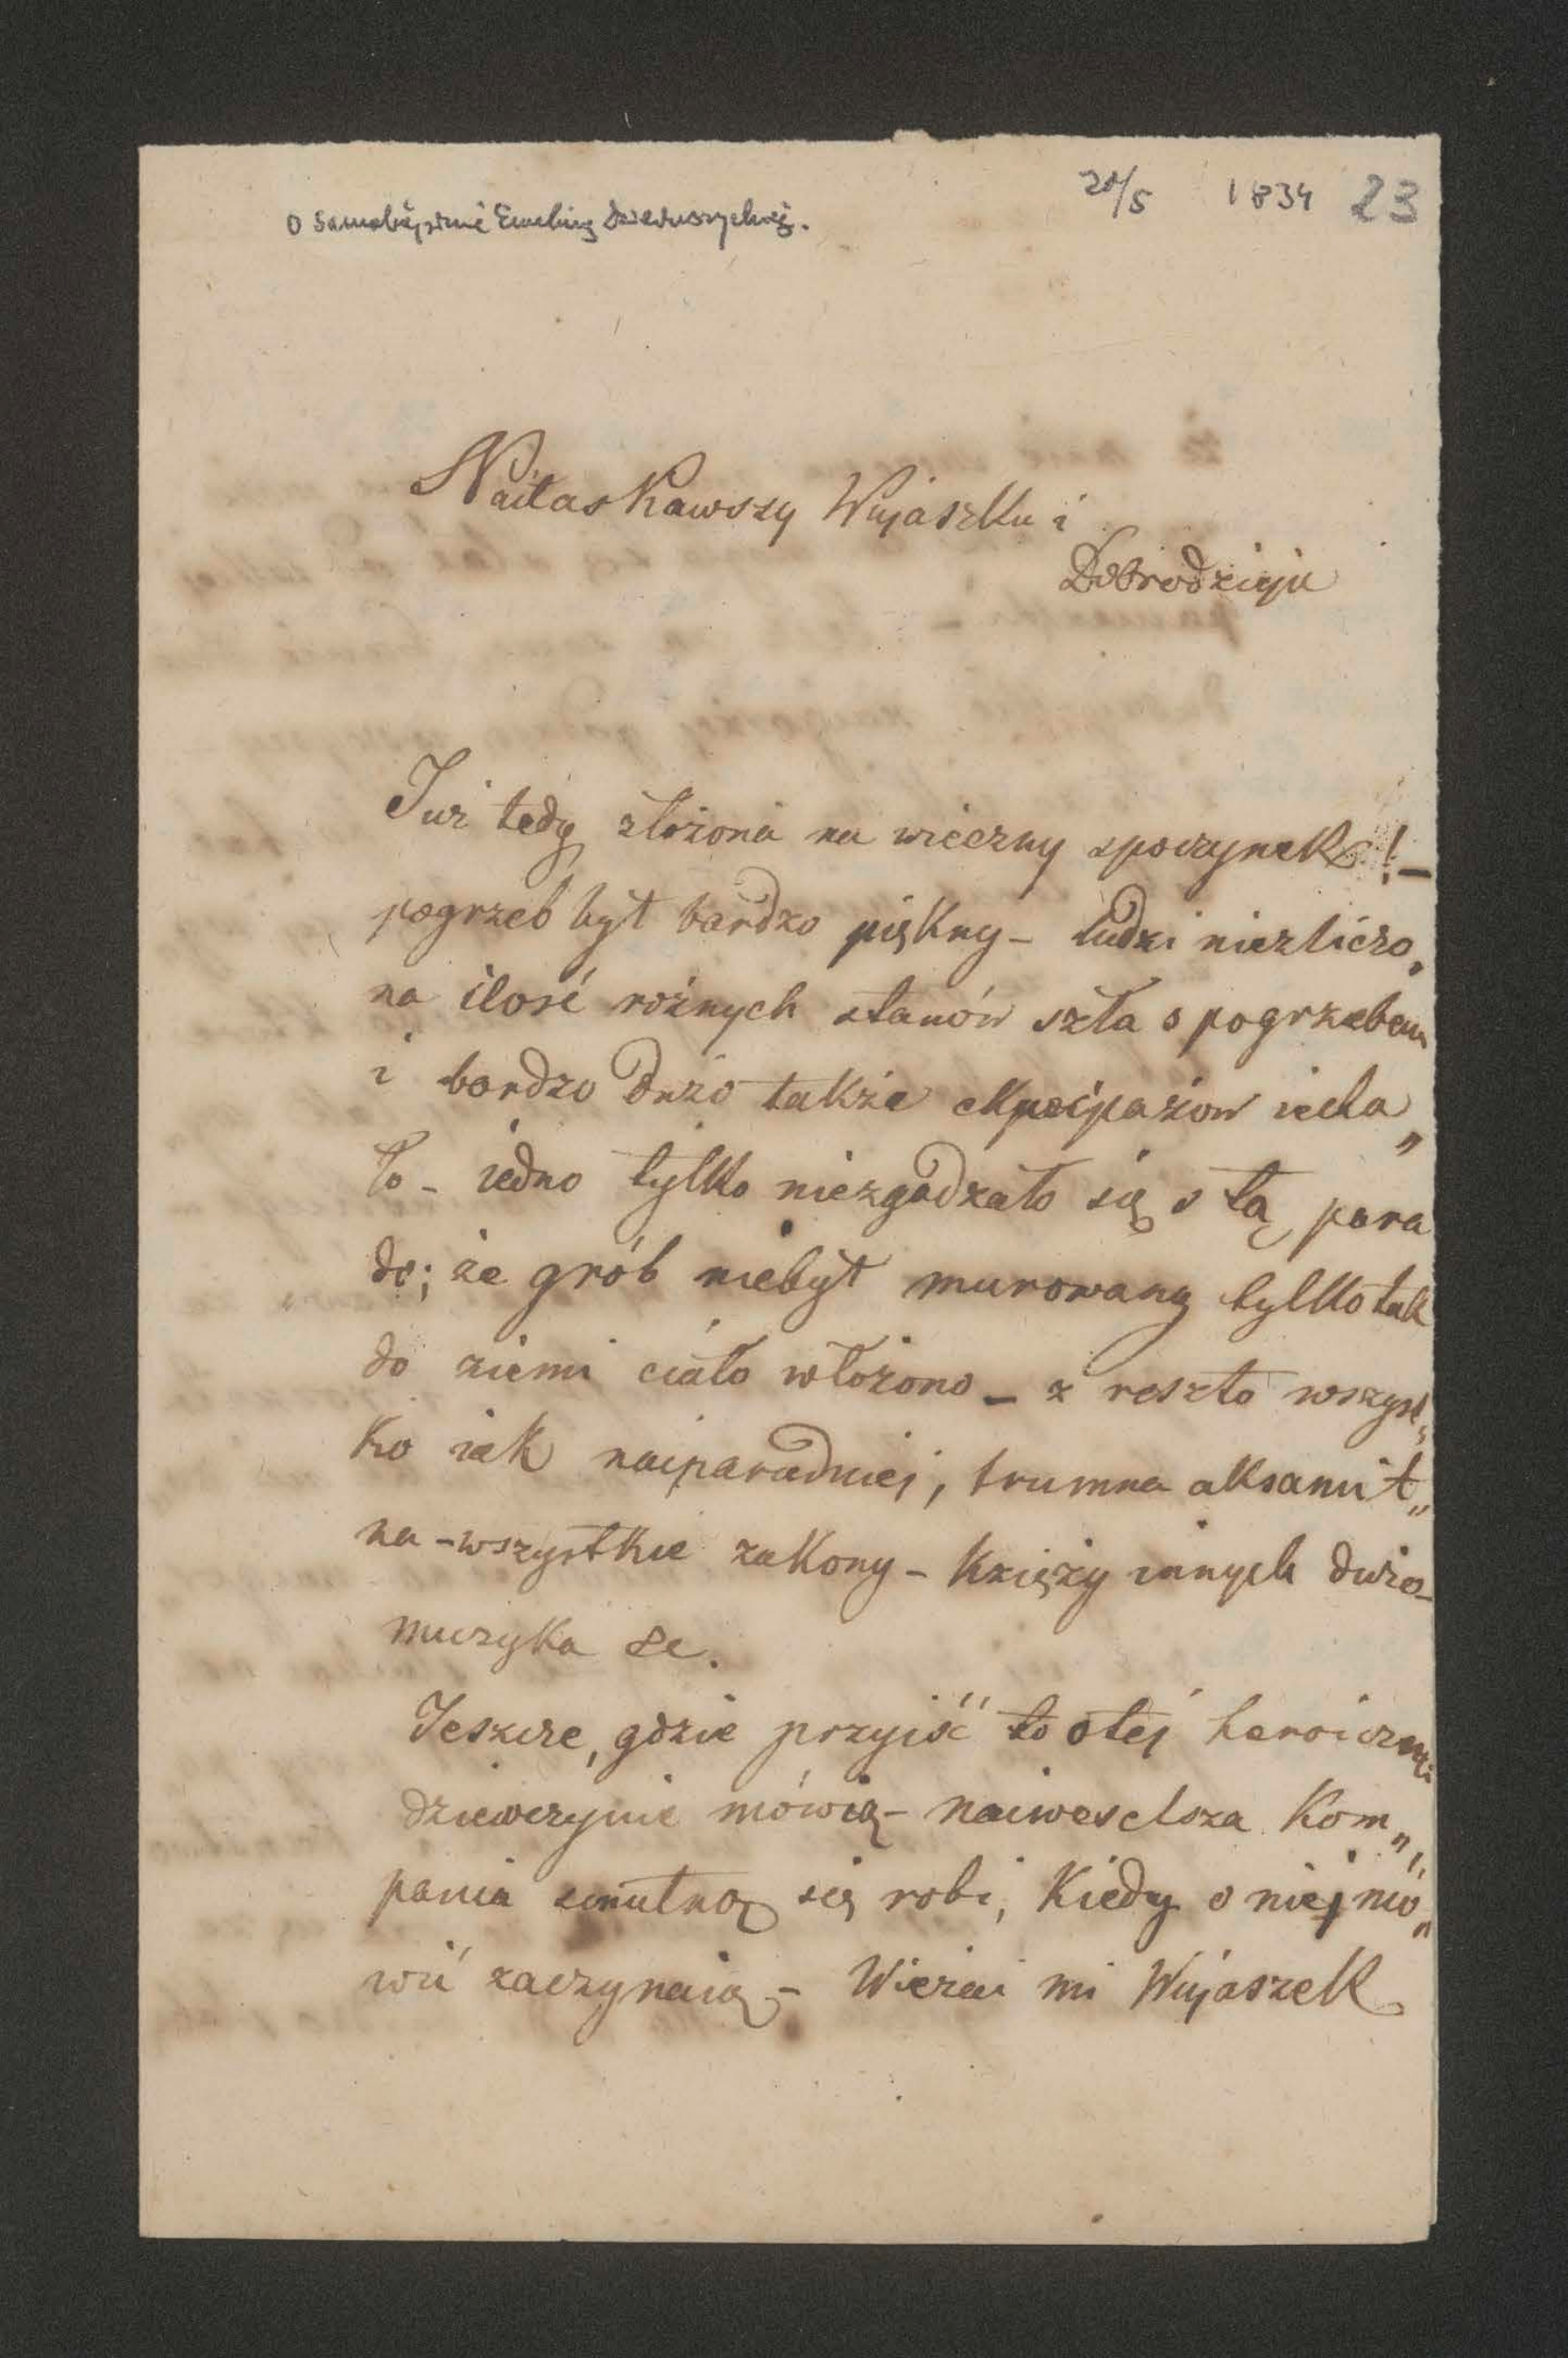 20/5 1834 23
O samobójstwie Eweliny Dzieduszyckiej.
Naiłaskawszy Wujaszku i
Dobrodzieju
Iuż tedy złożona na wieczny spoczynek! –
pogrzeb był bardzo piękny – ludzi niezliczo„
na ilość rożnych stanów szła s pogrzebem
i bardzo dużo także ekpaipażow iecha„
ło – iedno tylko niezgadzało się s tą para
dą; że grób niebył murowany tylko tak
do ziemi ciało włożono – z resztą wszyst„
ko iak naiparadniej, trumna aksamit„
na – wszystkie zakony – księży innych dużo –
muzyka &c.
Ieszcze, gdzie przyiść to o tej heroiczny
dziewczynie mówią – naiweselsza kom„
pania smutną się robi, kiedy o niej mo„
wić zaczynaią – Wierzai mi Wujaszek